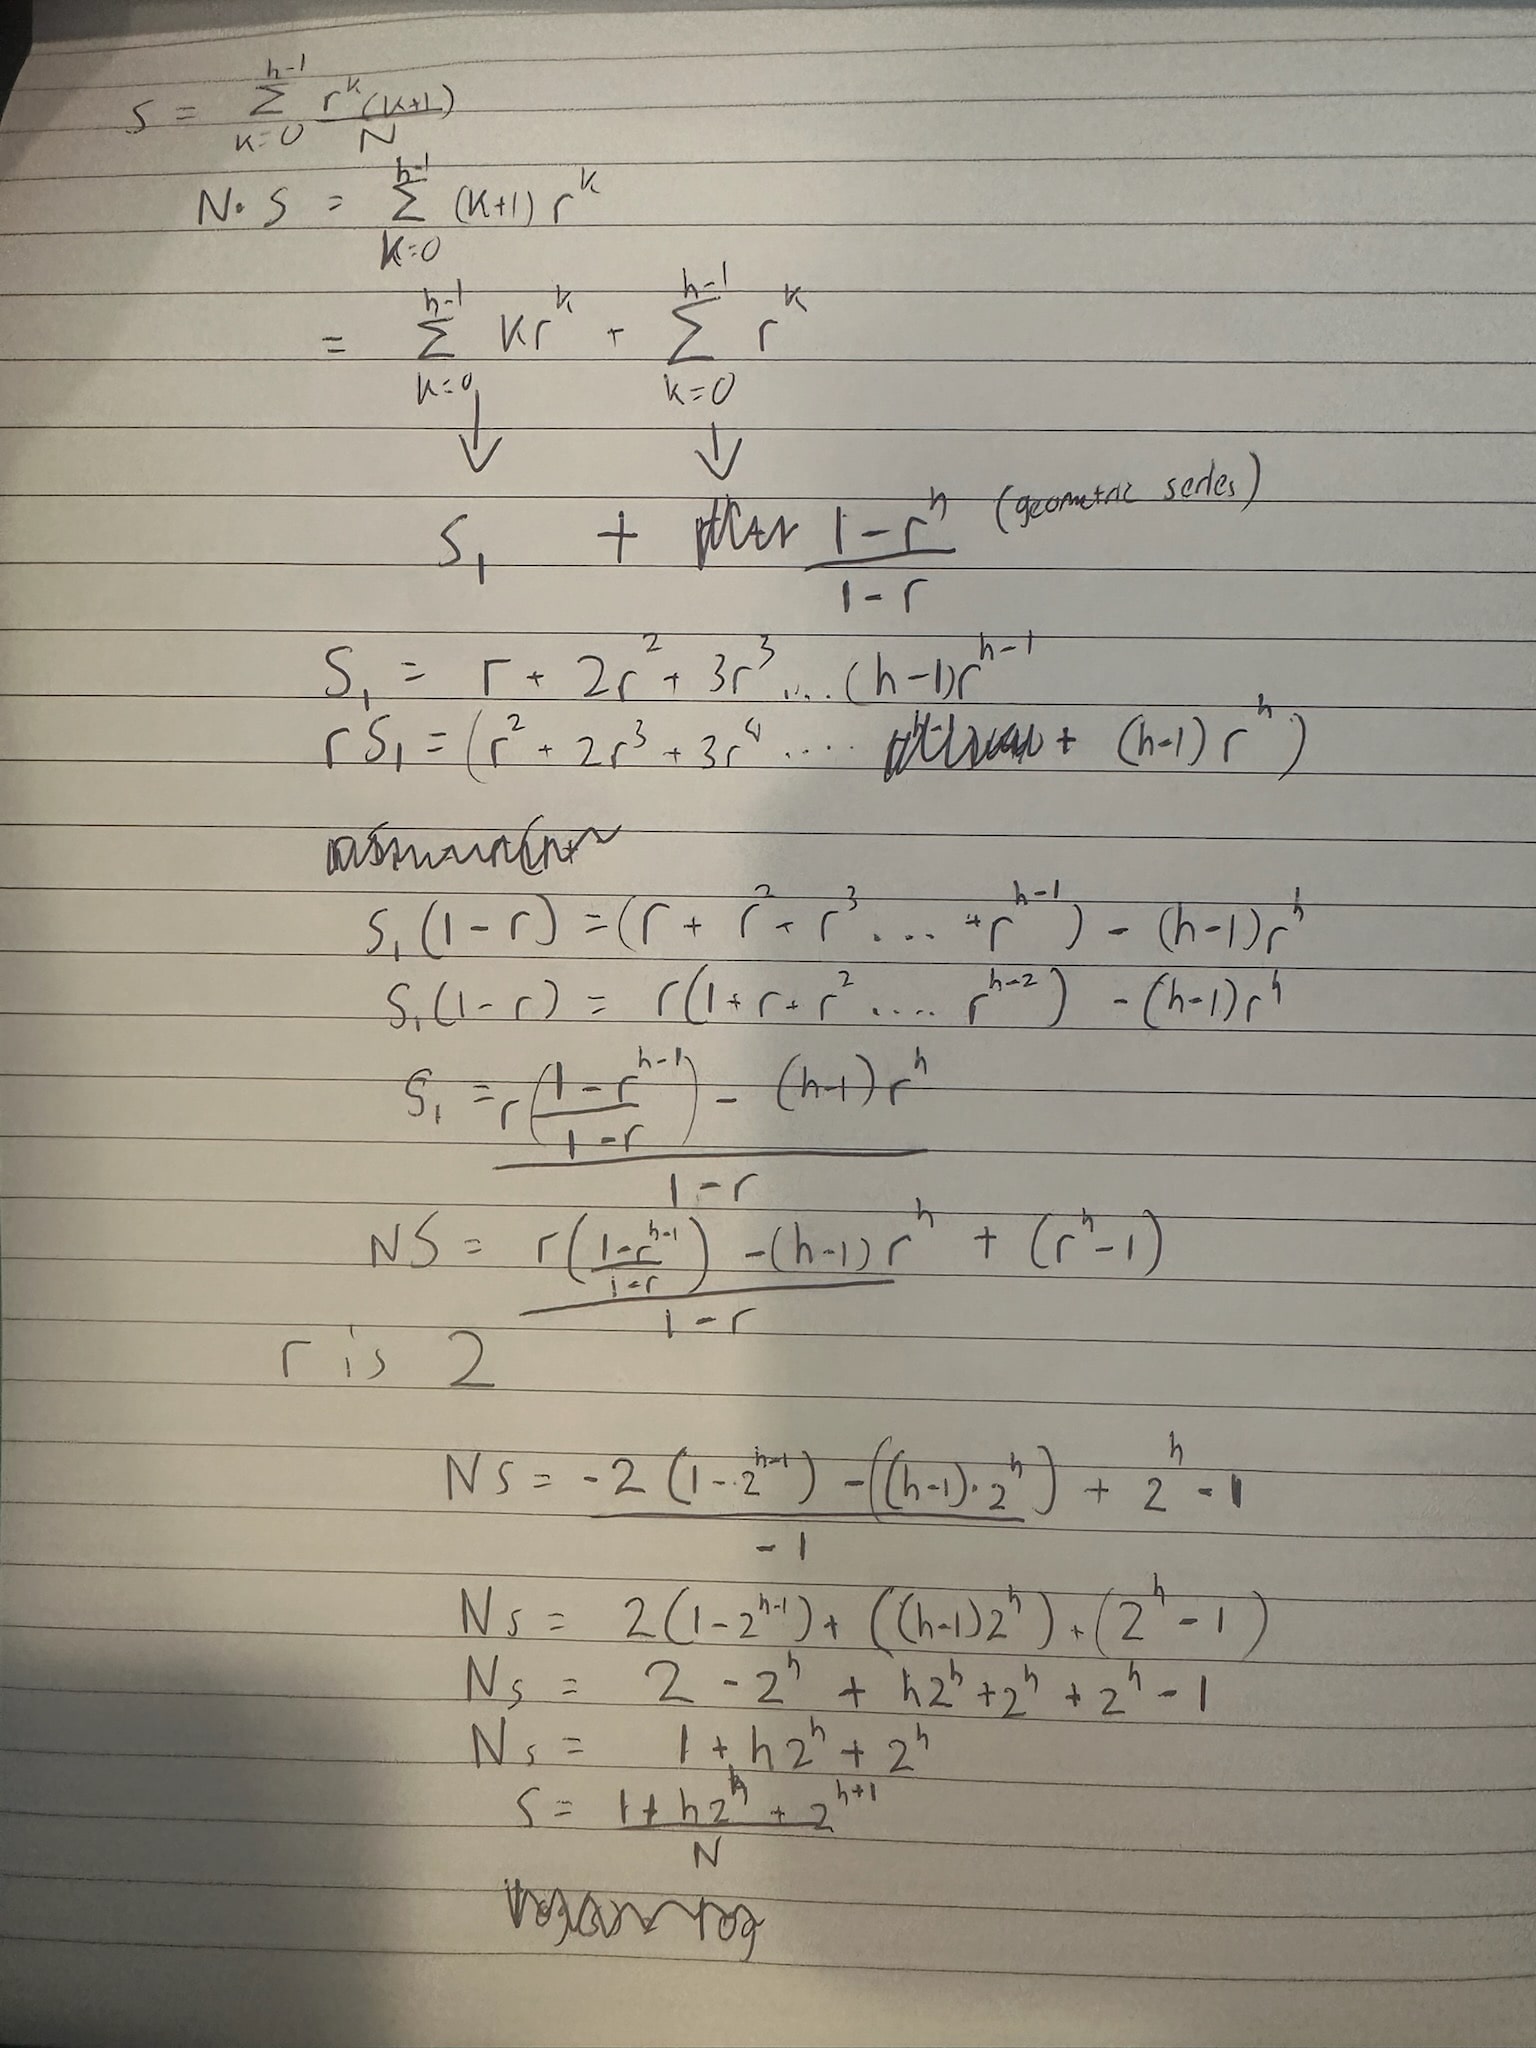 S = Σ_{k=0}^{h-1} r^k (k+1) / N
N·S = Σ_{k=0}^{h-1} (k+1) r^k
= Σ_{k=0}^{h-1} kr^k + Σ_{k=0}^{h-1} r^k
↓ ↓
S₁ + (1-r^h)/(1-r) (geometric series)
S₁ = r + 2r² + 3r³ .... (h-1)r^{h-1}
rS₁ = (r² + 2r³ + 3r⁴ .... + (h-1) r^h)
S₁(1-r) = (r + r² + r³ .... + r^{h-1}) - (h-1)r^h
S₁(1-r) = r(1 + r + r² .... r^{h-2}) - (h-1)r^h
S₁ = (r((1-r^{h-1})/(1-r)) - (h-1)r^h)/(1-r)
NS = (r((1-r^{h-1})/(1-r)) - (h-1)r^h)/(1-r) + (r^h - 1)
r is 2
NS = (-2(1-2^{h-1}) - ((h-1)·2^h))/(-1) + 2^h - 1
NS = 2(1-2^{h-1}) + ((h-1)2^h) + (2^h - 1)
NS = 2 - 2^h + h2^h + 2^h + 2^h - 1
NS = 1 + h2^h + 2^h
S = (1 + h2^h + 2^{h+1})/N